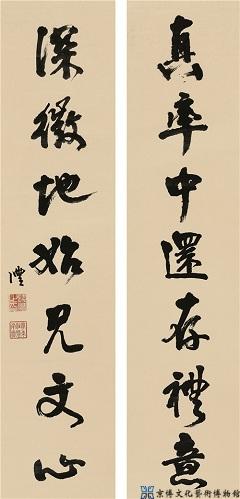 真率中還存禮意
深微地始見文心
澧
京博文化藝術博物館